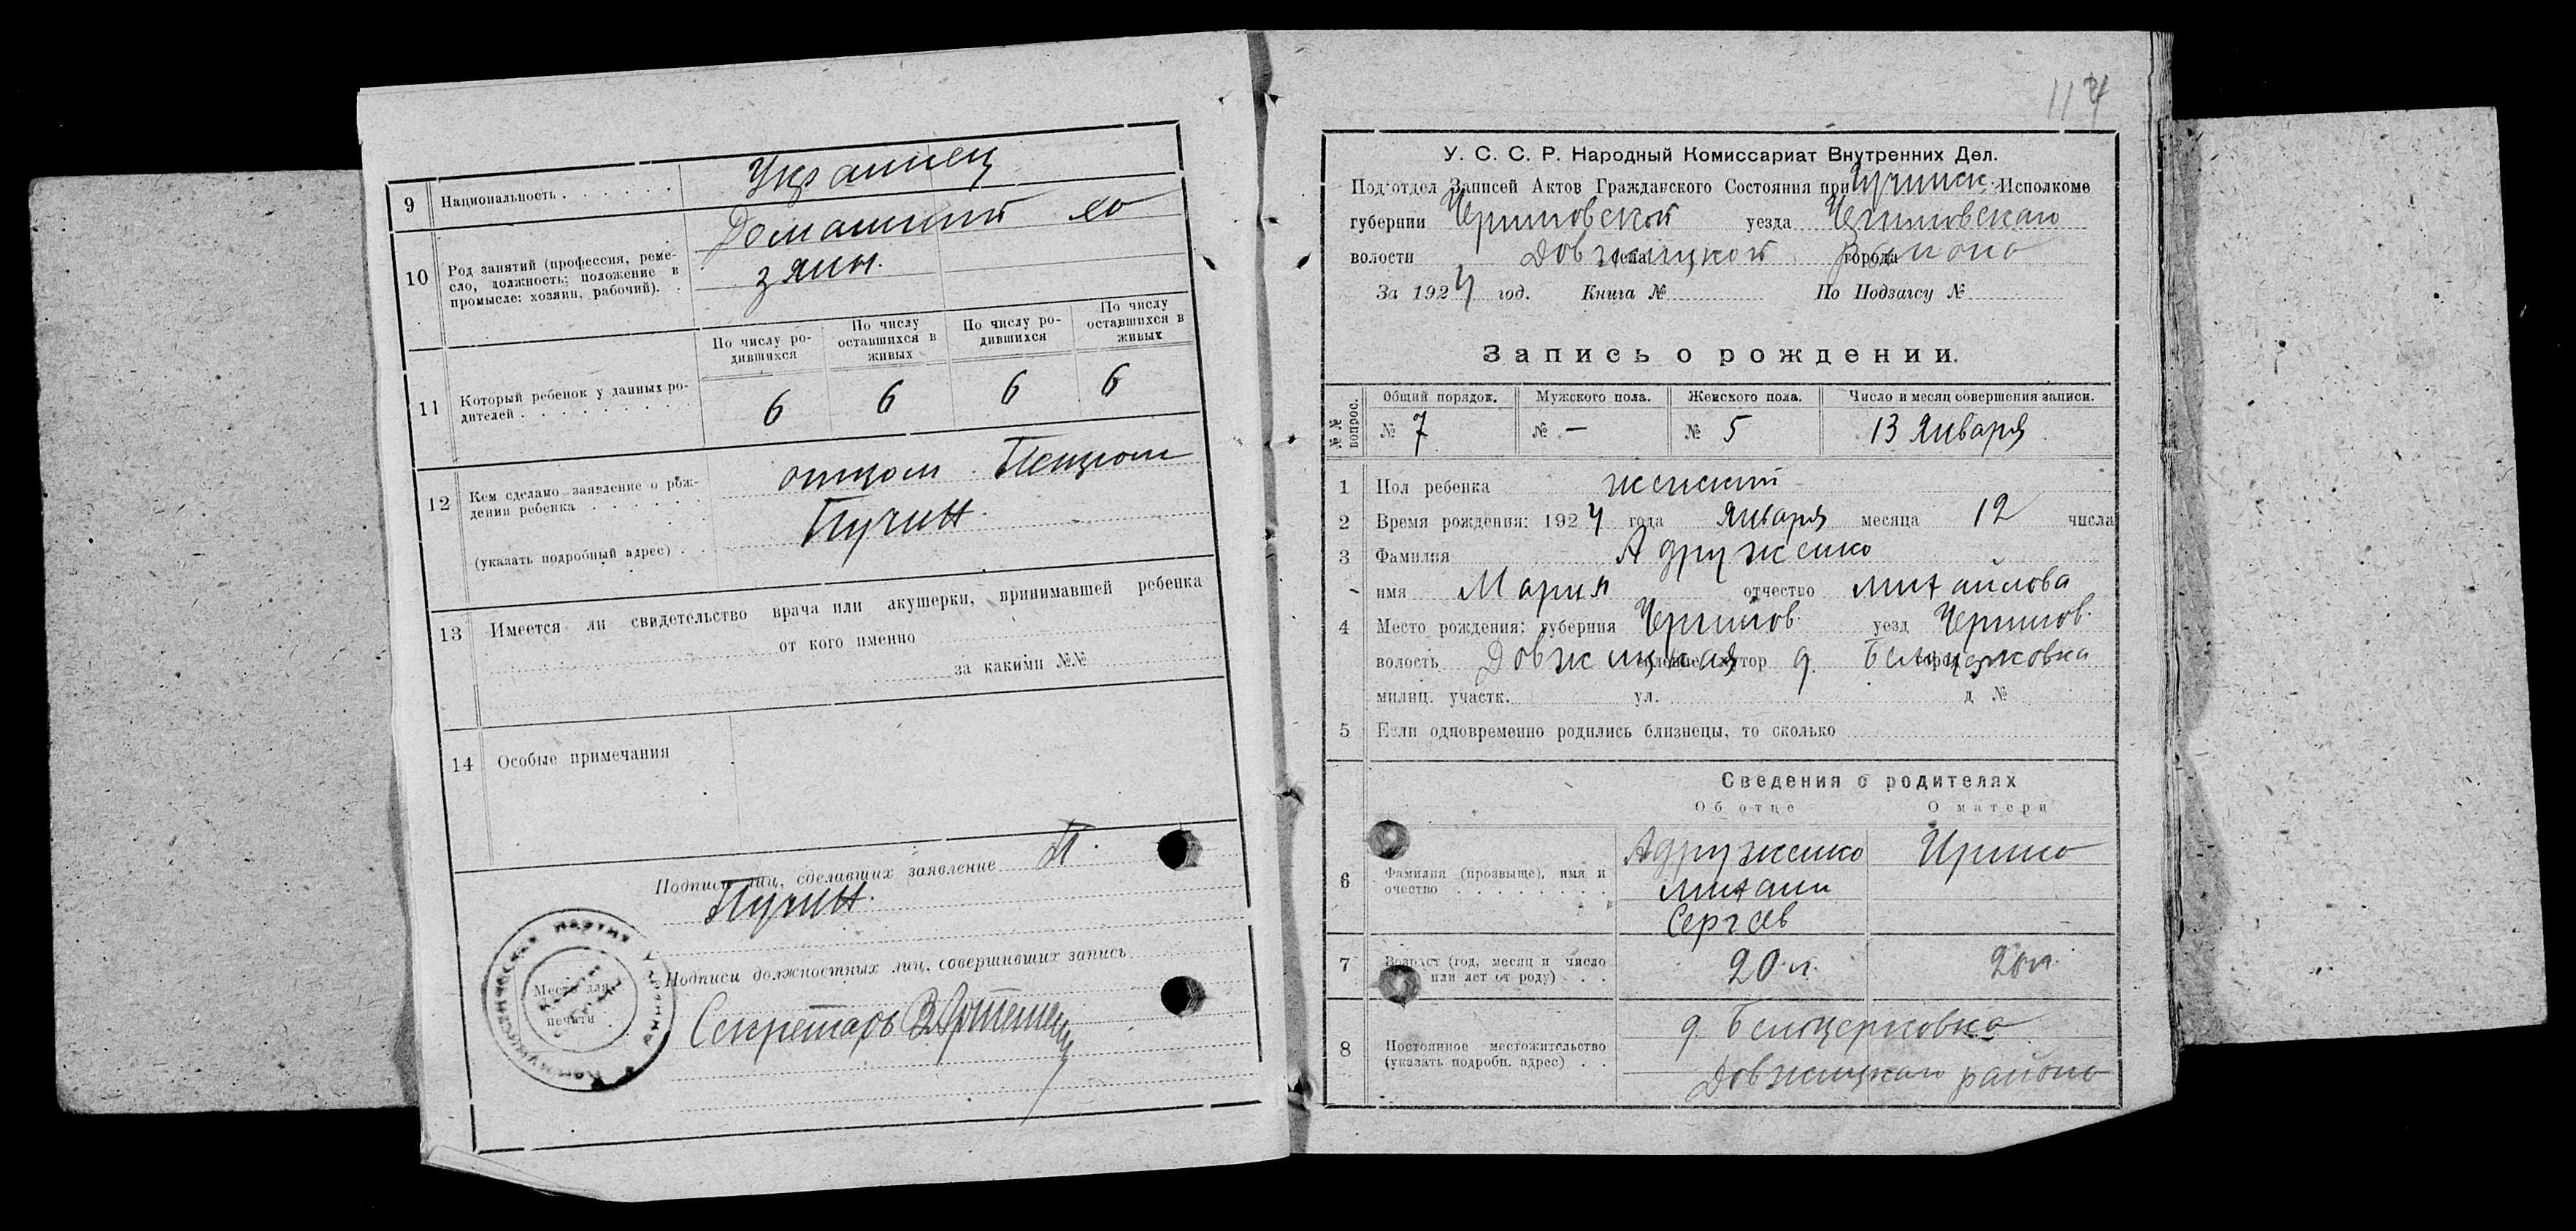 9 Национальность . . . . . . Украинец
10 Род занятий (профессия, реме-
сло, должность; положение в
промысле: хозяин, рабочий). .
Домашний хо
зяин.
11 Который ребенок у данных ро-
дителей . . . . . . . . . .
По числу ро-
дившихся
По числу
оставшихся в
живых
По числу ро-
дившихся
По числу
оставшихся в
живых
6 6 6 6
12 Кем сделано заявление о рож-
дении ребенка . . . . . .
(указать подробный адрес) . .
отцом
13 Имеется ли свидетельство врача или акушерки, принимавшей ребенка
от кого именно
за какими №№
14 Особые примечания
Подписи лиц, сделавших заявление П.
Подписи должностных лиц, совершивших запись
Секретарь
Место для
печати
117
У. С. С. Р. Народный Комиссариат Внутренних Дел.
Под'отдел Записей Актов Гражданского Состояния при Исполкоме
губернии Черниговской уезда Черниговскаго
волости Довжицкой села города района
За 1924 год. Книга № По Подзагсу №
Запись о рождении.
№ № вопрос.
Общий порядок. Мужского пола. Женского пола. Число и месяц совершения записи.
№ 7 № — № 5 13 Января
1 Пол ребенка женский
2 Время рождения: 1924 года Января месяца 12 числа
3 Фамилия Адруженко
имя Мария отчество Михайлова
4 Место рождения: губерния Чернигов. уезд Чернигов.
волость Довжицкая селение, хутор д. Белоцерковка
милиц. участк. ул. д №
5 Если одновременно родились близнецы, то сколько
Сведения о родителях
Об отце О матери
6 Фамилия (прозвыще), имя и
очество . . . . . . . .
Адруженко Ирина
Михаил
Сергеев
7 Возраст (год, месяц и число
или лет от роду) . .
20 л. 20 л.
8 Постоянное местожительство
(указать подробн. адрес) . .
д. Белоцерковка
Довжицкаго района